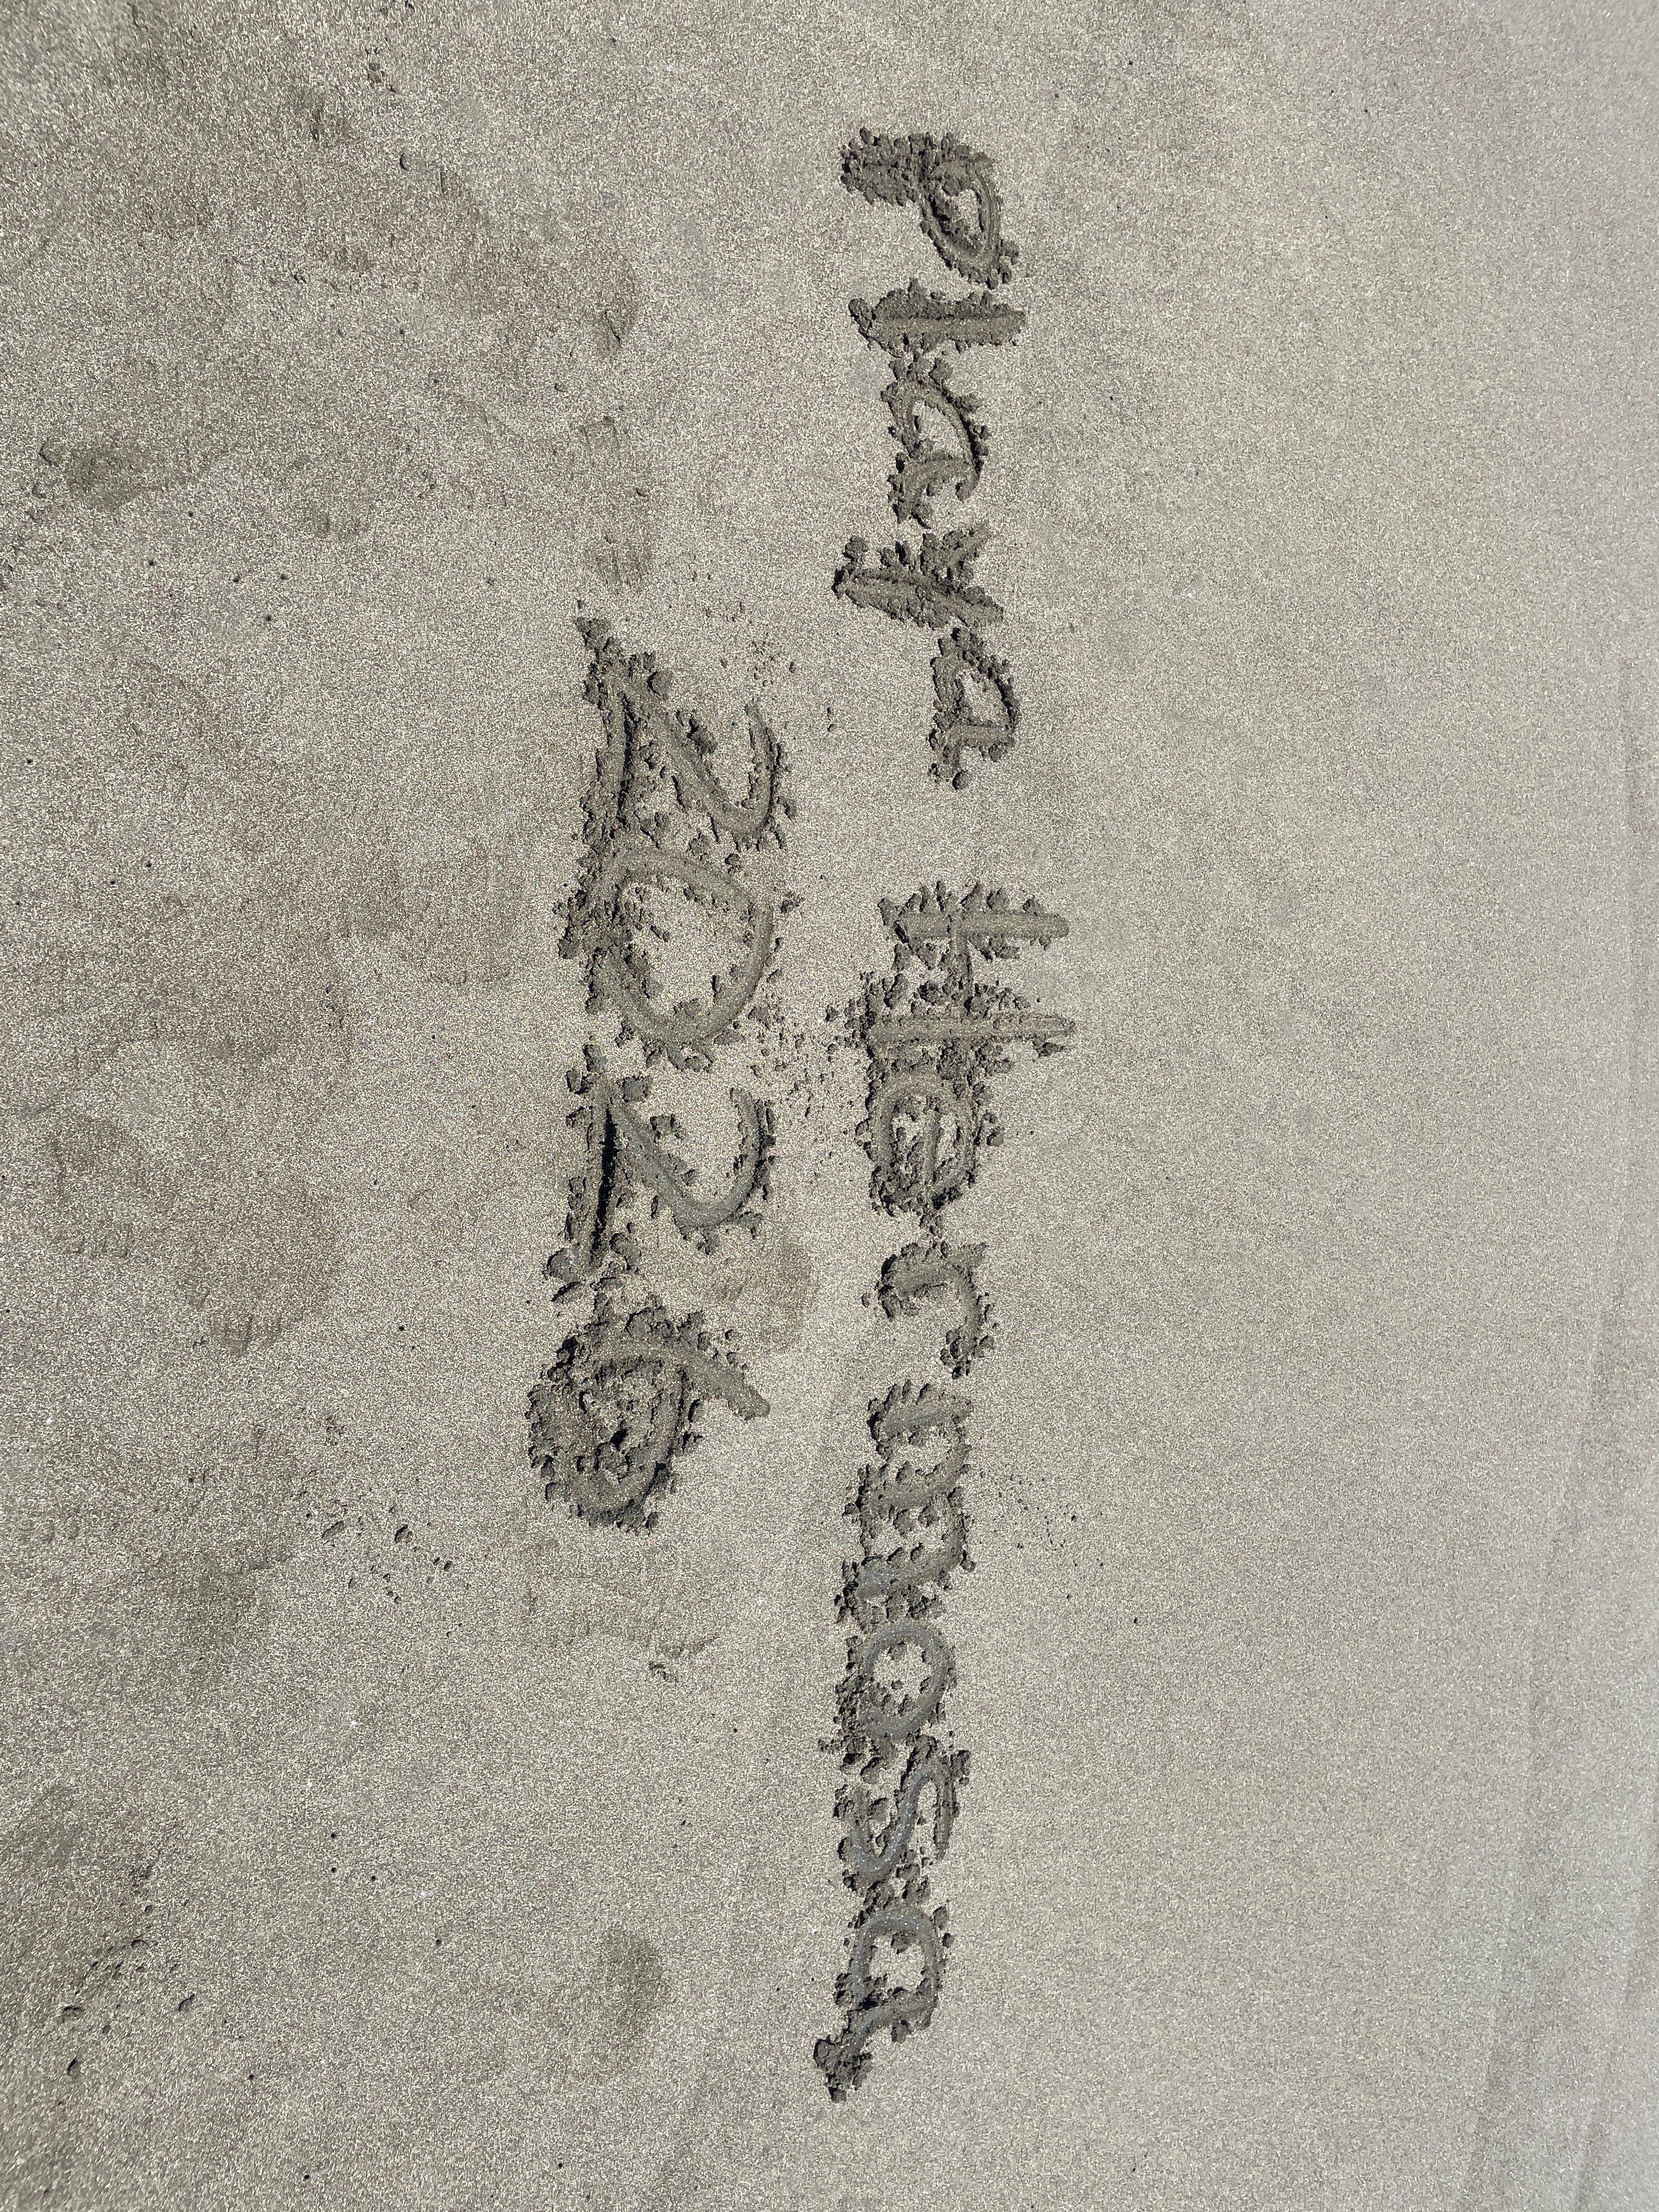 Playa Hermosa
2026